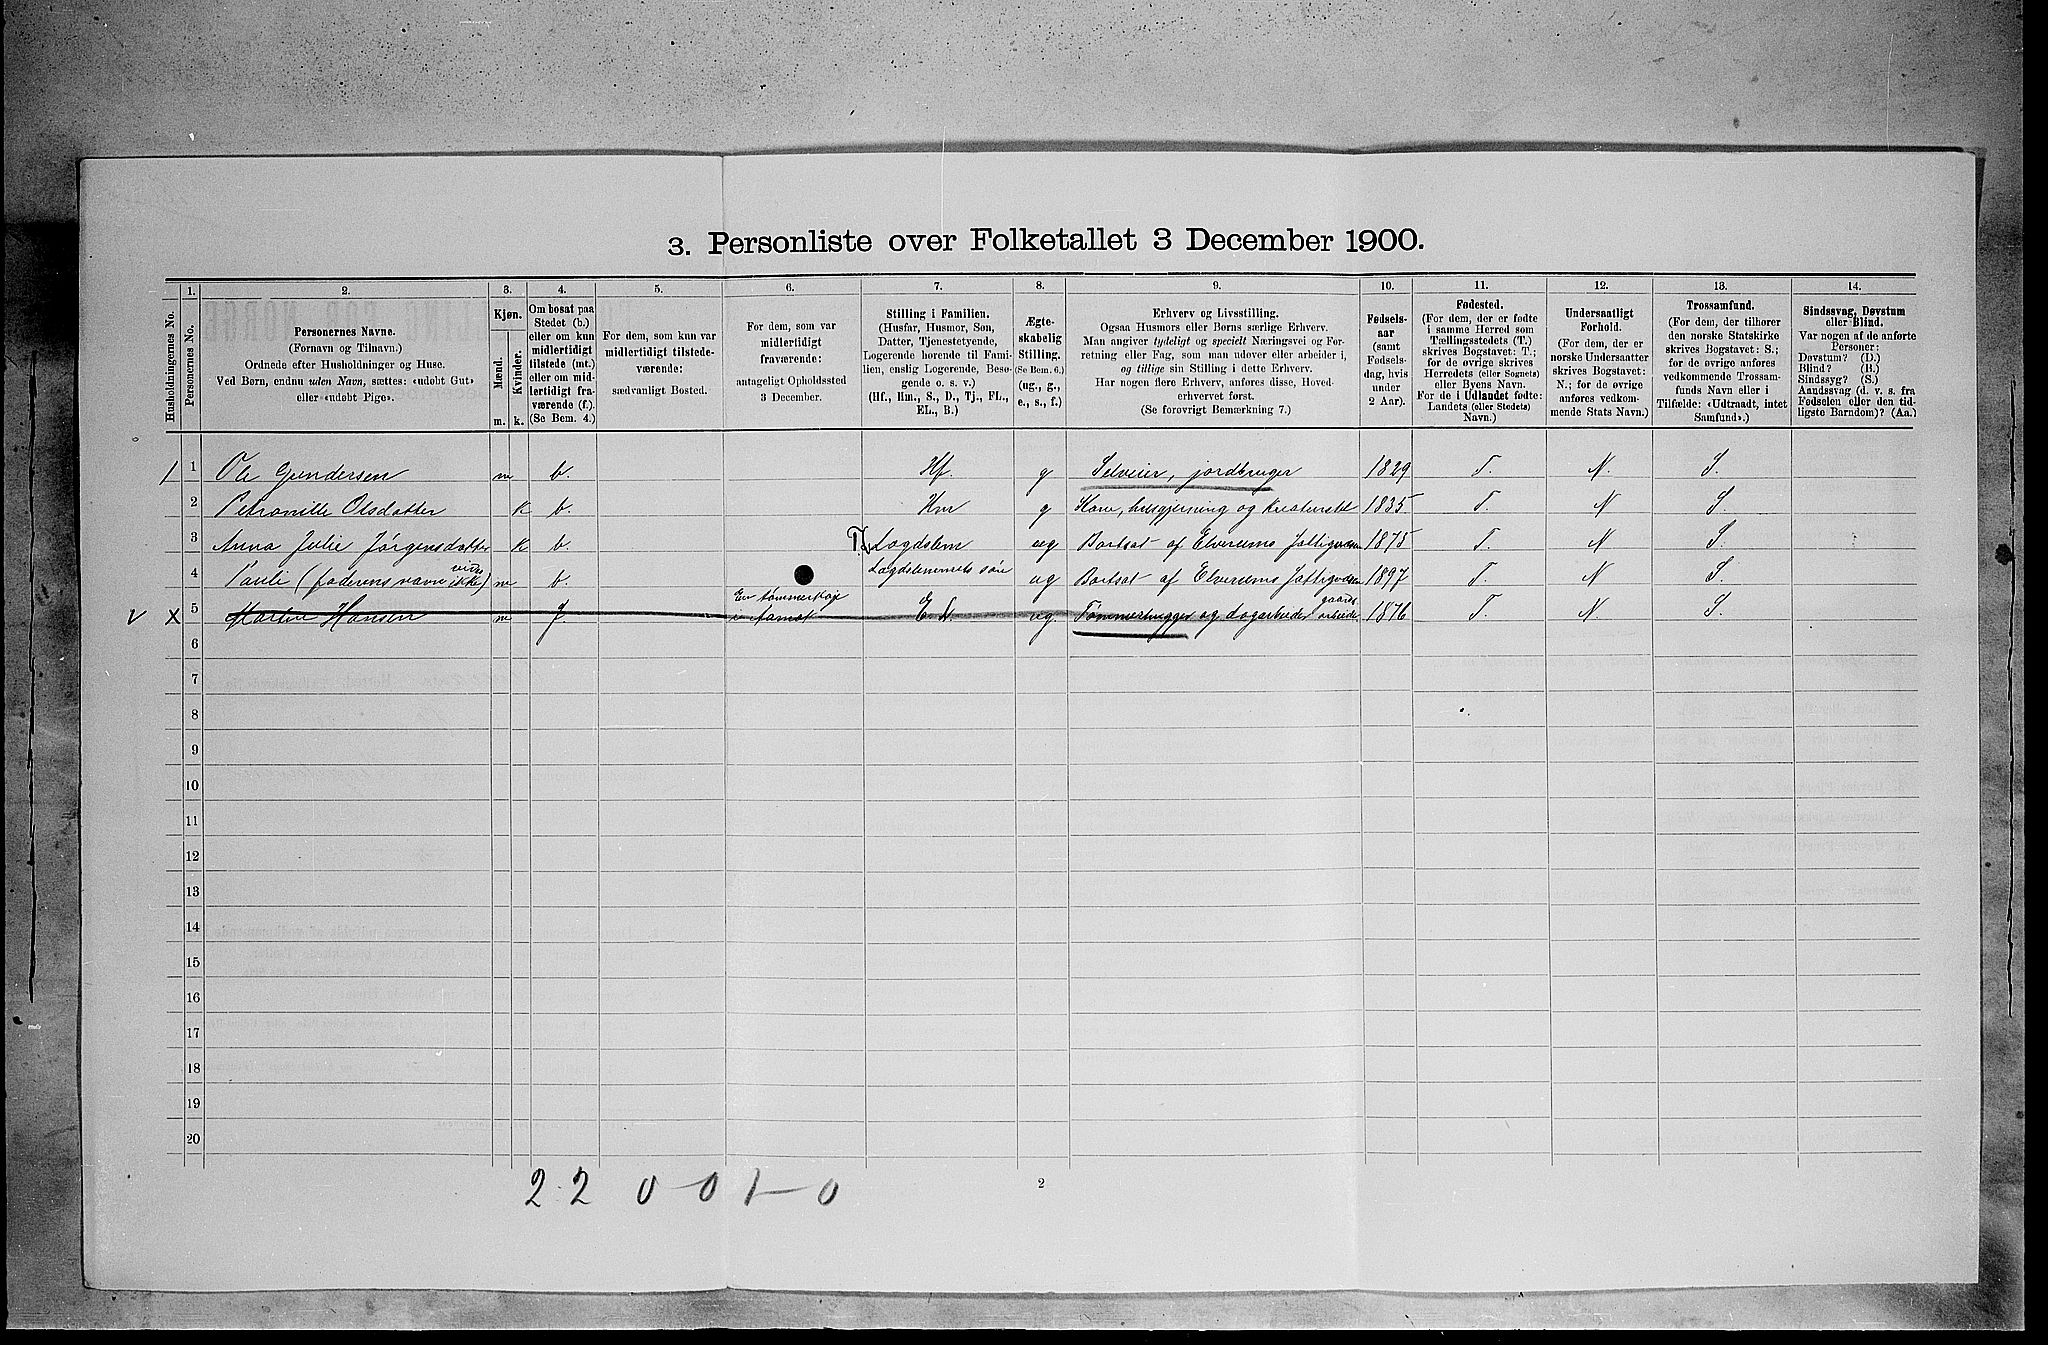 3. Personliste over Folketallet 3 December 1900.
Husholdningernes No.
1.
Personernes No.
2.
Personernes Navne.
(Fornavn og Tilnavn.)
Ordnede efter Husholdninger og Huse.
Ved Børn, endnu uden Navn, sættes: «udøbt Gut»
eller «udøbt Pige».
3.
Kjøn.
Mænd.
Kvinder.
m. k.
4.
Om bosat paa
Stedet (b.)
eller om kun
midlertidigt
tilstede (mt.)
eller om mid-
lertidigt fra-
værende (f.).
(Se Bem. 4.)
5.
For dem, som kun var
midlertidigt tilstede-
værende:
sædvanligt Bosted.
6.
For dem, som var
midlertidigt
fraværende:
antageligt Opholdssted
3 December.
7.
Stilling i Familien.
(Husfar, Husmor, Søn,
Datter, Tjenestetyende,
Logerende hørende til Fami-
lien, enslig Logerende, Besø-
gende o. s. v.)
(Hf., Hm., S., D., Tj., FL.,
EL., B.)
8.
Ægte-
skabelig
Stilling.
(Se Bem. 6.)
(ug., g.,
e., s., f.)
9.
Erhverv og Livsstilling.
Ogsaa Husmors eller Børns særlige Erhverv.
Man angiver tydeligt og specielt Næringsvei og For-
retning eller Fag, som man udover eller arbeider i,
og tillige sin Stilling i dette Erhverv.
Har nogen flere Erhverv, anføres disse, Hoved-
erhvervet først.
(Se forøvrigt Bemærkning 7.)
10.
Fødsels-
aar
(samt
Fødsels-
dag, hvis
under
2 Aar).
11.
Fødested.
(For dem, der er fødte
i samme Herred som
Tællingsstedets (T.)
skrives Bogstavet: T.;
for de øvrige skrives
Herredets (eller Sognets)
eller Byens Navn.
For de i Udlandet fødte:
Landets (eller Stedets)
Navn.)
12.
Undersaatligt
Forhold.
(For dem, der er
norske Undersaatter
skrives Bogstavet:
N.; for de øvrige
anføres vedkom-
mende Stats Navn.)
13.
Trossamfund.
(For dem, der tilhører
den norske Statskirke
skrives Bogstavet: S.;
for de øvrige anføres
vedkommende Trossam-
funds Navn eller i
Tilfælde: «Udtraadt, intet
Samfund».)
14.
Sindssvag, Døvstum
eller Blind.
Var nogen af de anførte
Personer:
Døvstum? (D.)
Blind? (B.)
Sindssyg? (S.)
Aandssvag (d. v. s. fra
Fødselen eller den tid-
ligste Barndom)? (Aa.)
1 1 Ole Gundersen m b. Hf. g Selveier, jordbruger 1829 T. N. S.
2 Petronille Olsdatter k b. Hm g Kone, husgjerning og Kreaturstel 1835 T. N S.
3 Anna Julie Jørgensdatter k b. Lægdslem ug Bortsat af Elverums fattigvæsen 1875 T. N S.
4 Pauli (faderens navn vides ikke) m b. Lægdslemmets søn ug Bortsat af Elverums fattigvæsen 1897 T. N S.
v x 5 Martin Hansen m f En tømmerkoje i Aamot E. L. ug. Tømmerhugger og dagarbeider gaards arbeide 1876 T. N. S.
6
7
8
9
10
11
12
13
14
15
16
17
18
19
20
2 2 0 0 1 0
2